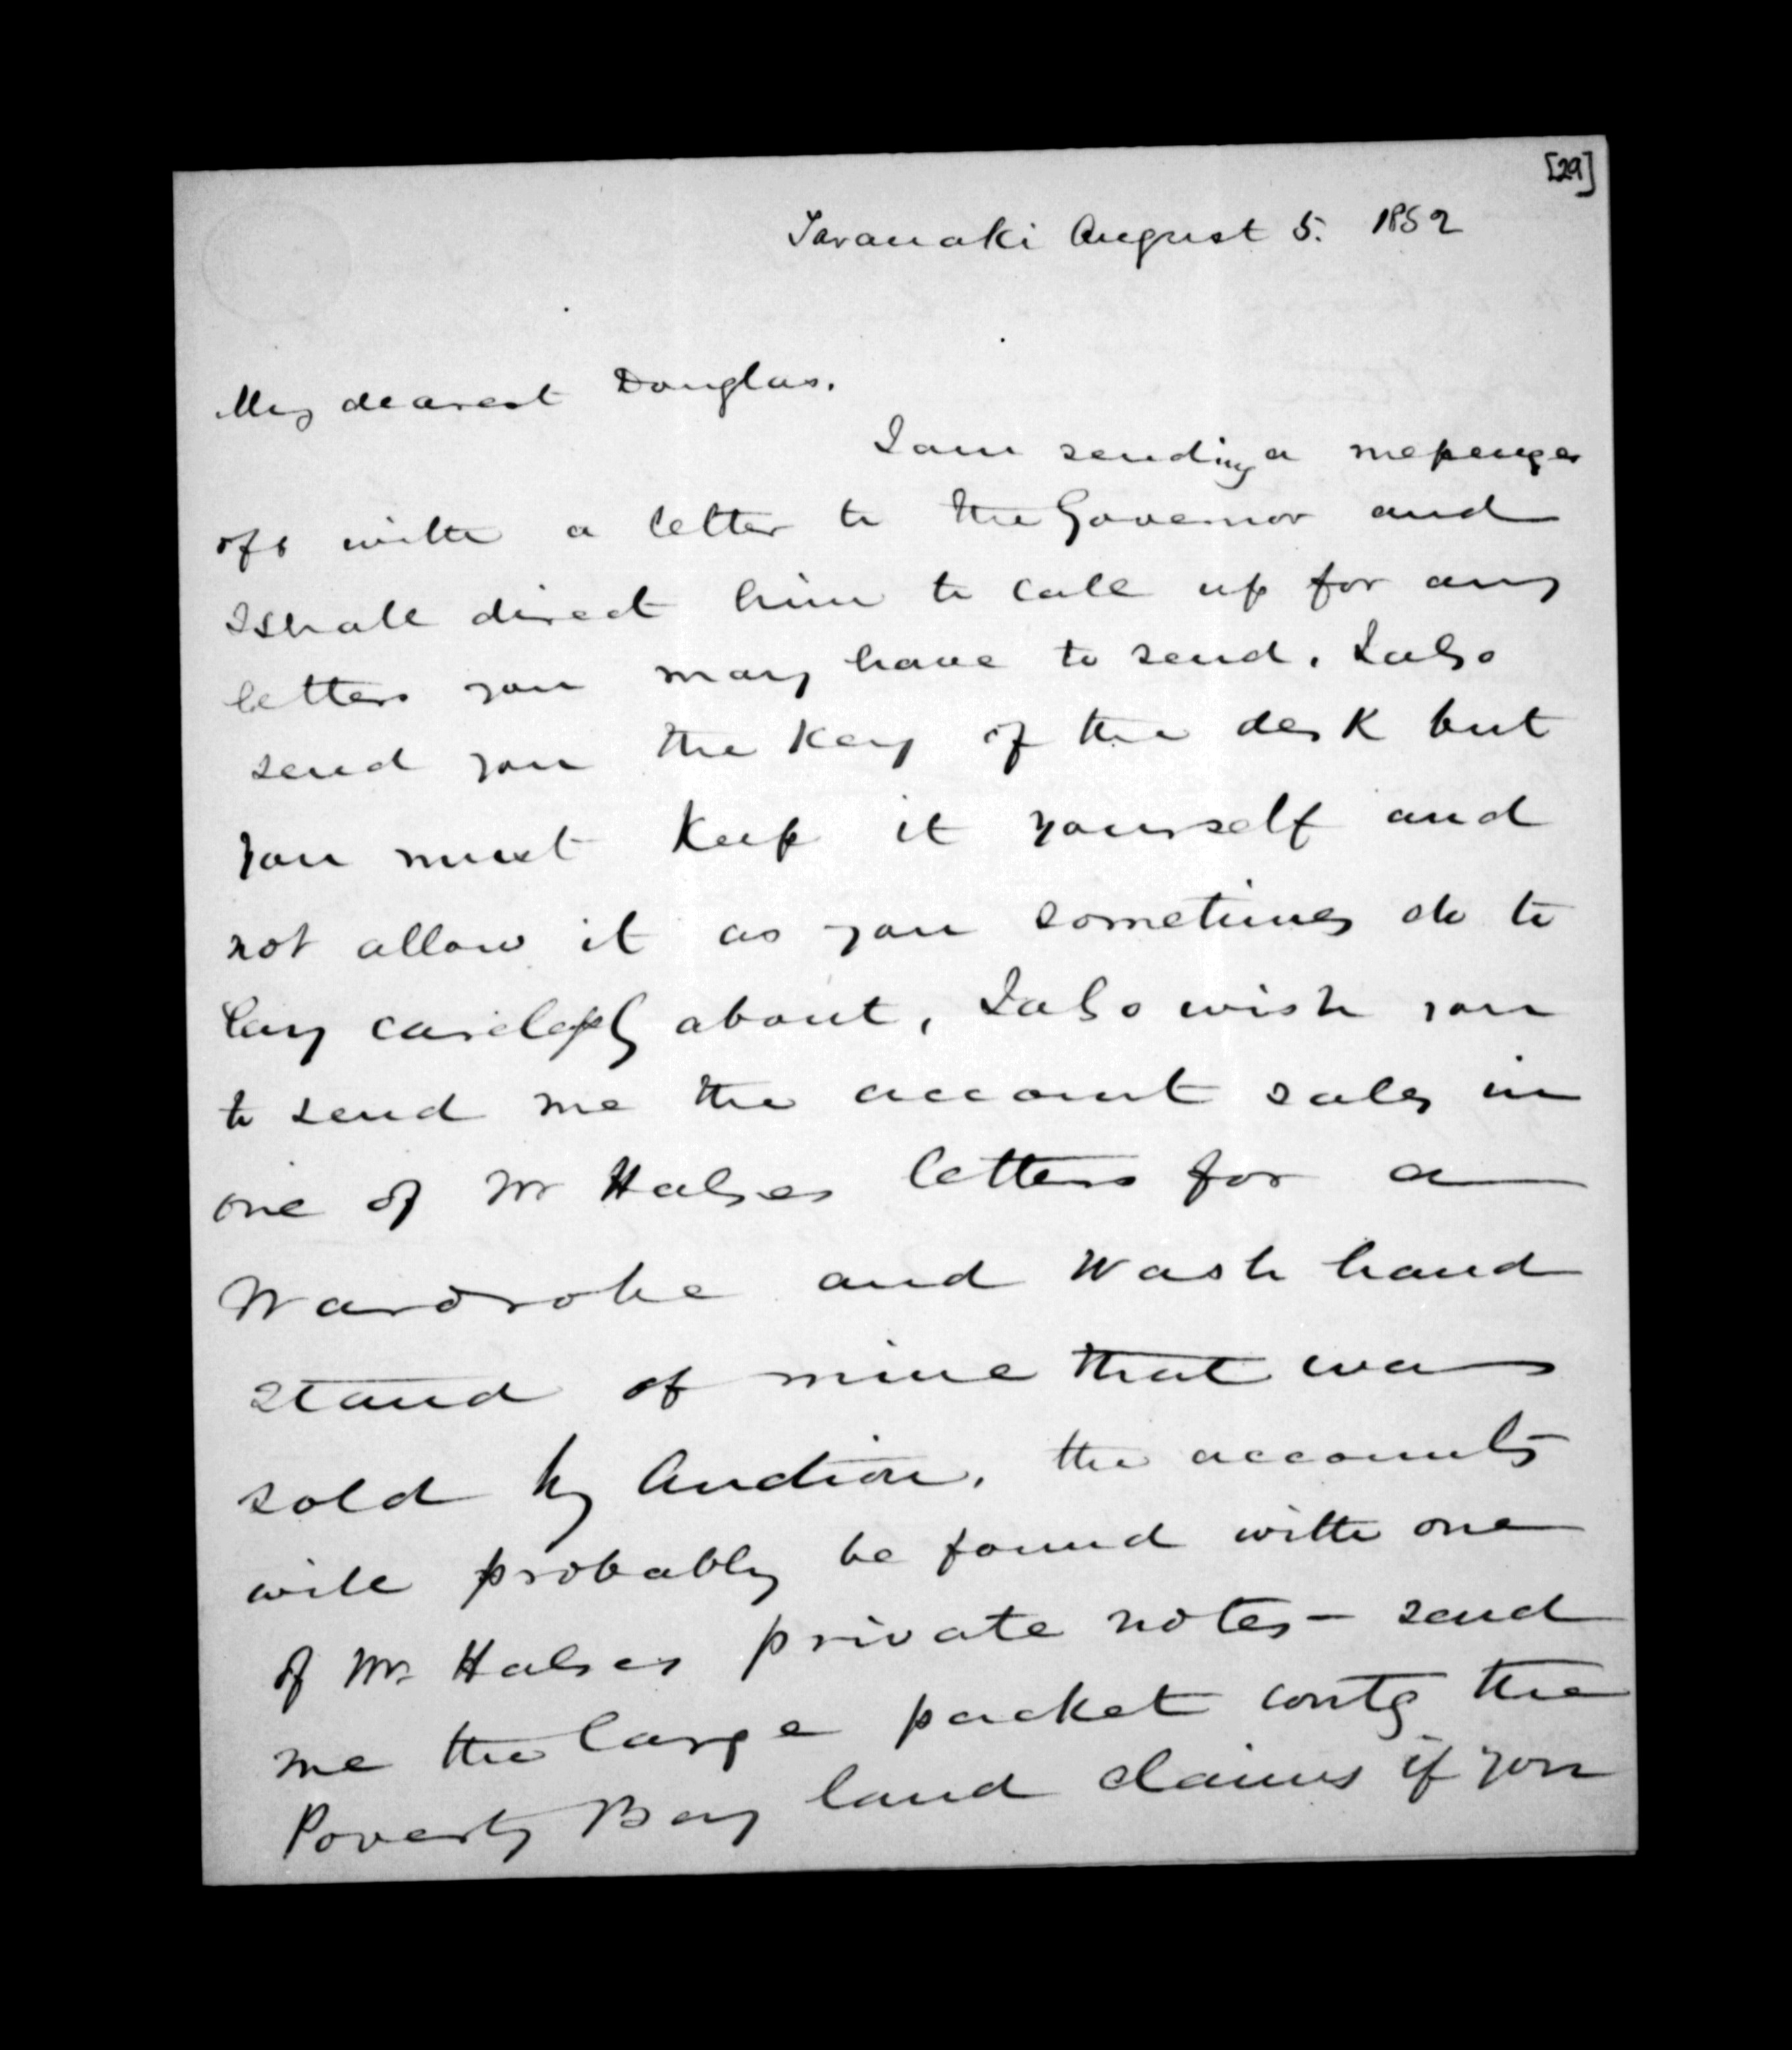 [29]
Taranaki August 5. 1852
My dearest Douglas.
I am sending a messenger
off with a letter to the Governor and
I shall direct him to call up for any
letters you may have to send. I also
send you the Key of the desk but
you must Keep it yourself and
not allow it as you sometimes do to
lay carelessly about, I also wish you
to send me the account sales in
one of Mr Halses letters for a
Wardrobe and Wash hand
stand of mine that was
sold by Auction, the accounts
will probably be found with one
of Mr Halses private notes - send
me the large packet contg the
Poverty Bay land claims if you